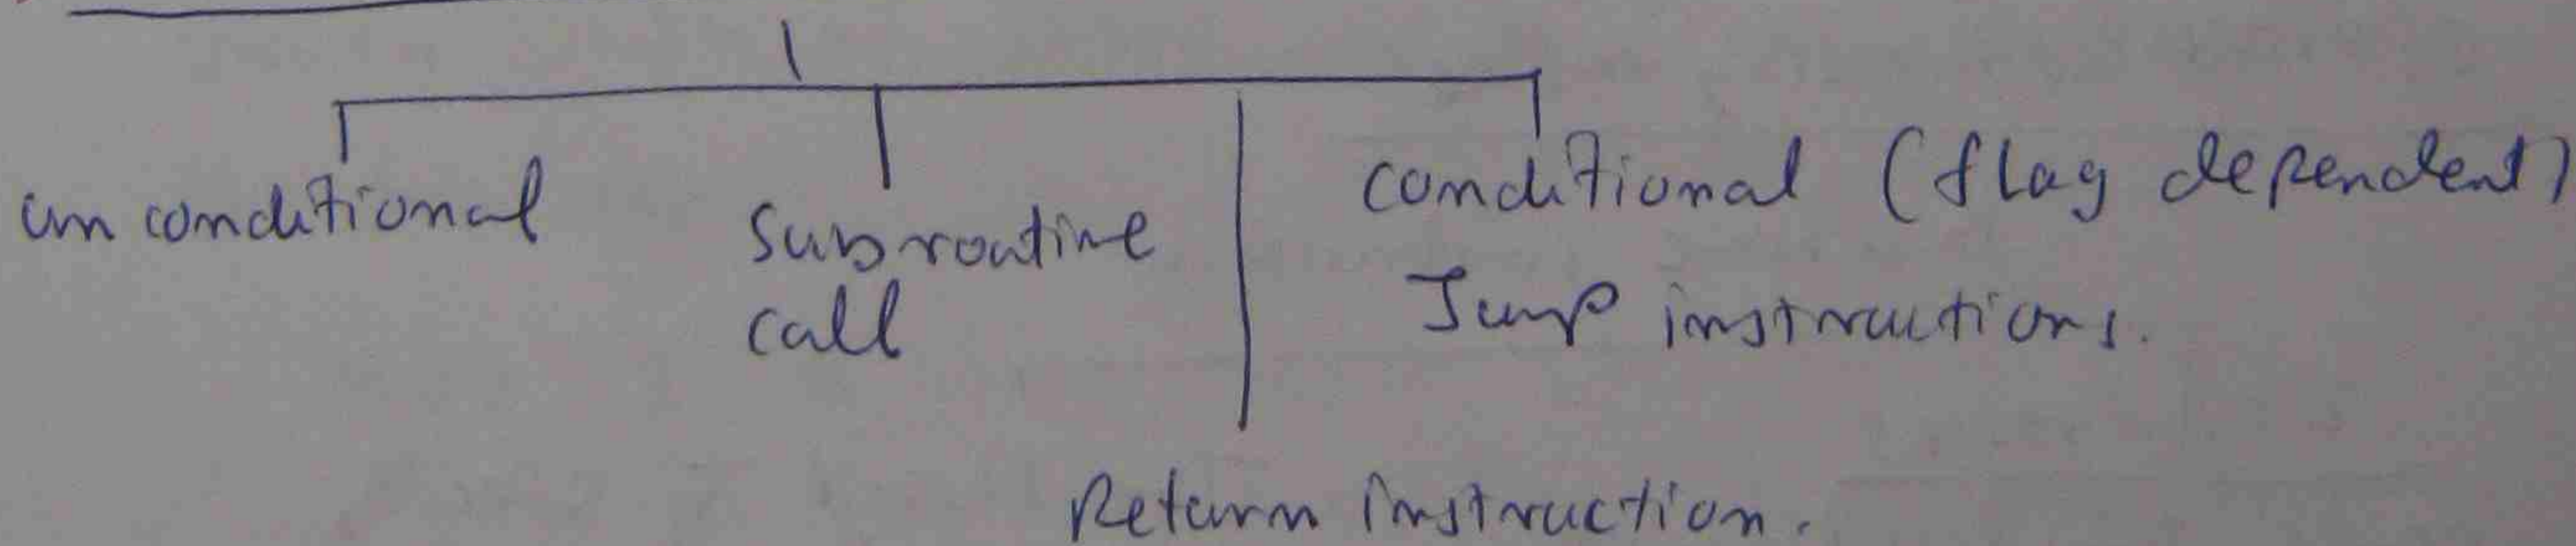 unconditional
Subroutine
call
conditional (flag dependent)
Jump instructions.
Return instruction.